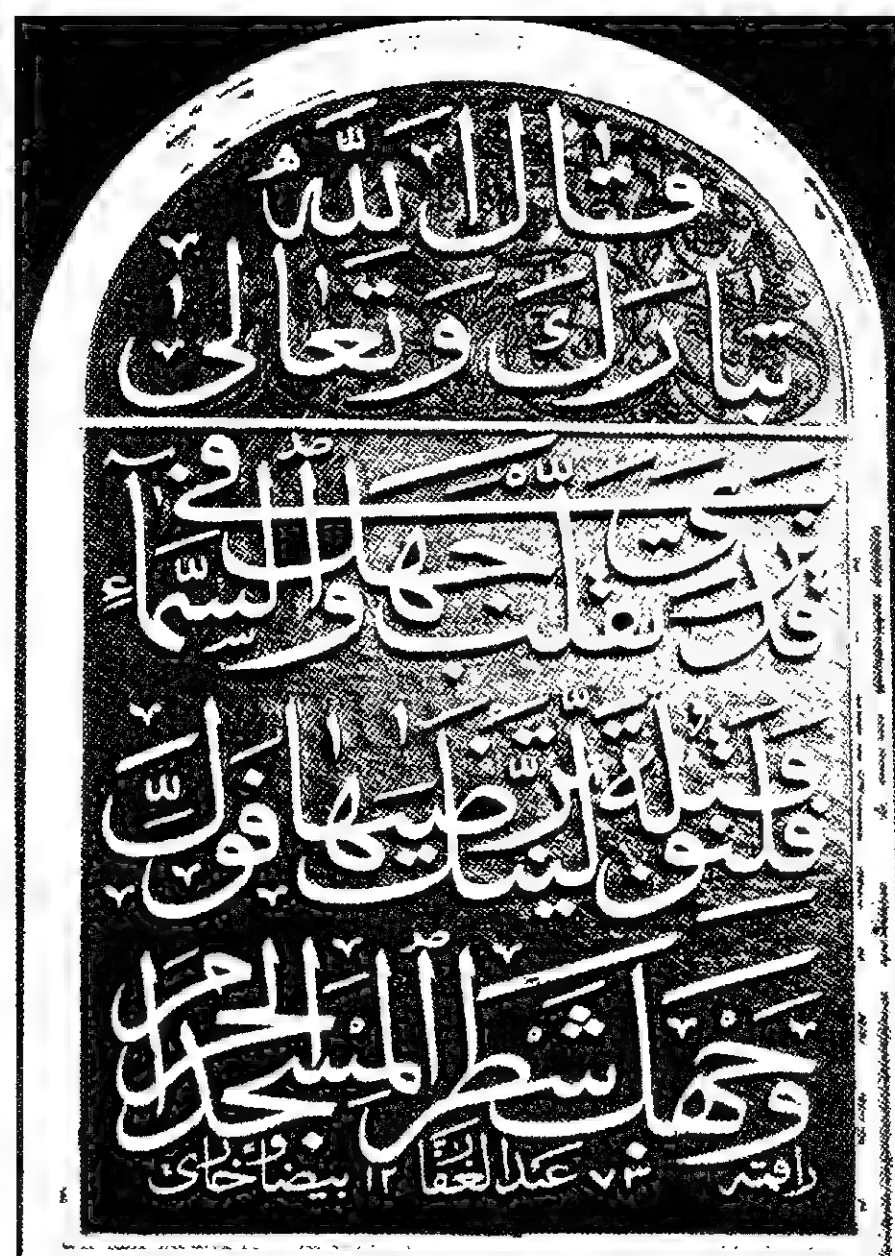 قَالَ اللّٰهُ
تَبَارَكَ وَتَعَالٰى
قَدْ نَرٰى تَقَلُّبَ وَجْهِكَ فِي السَّمَآءِ
فَلَنُوَلِّيَنَّكَ قِبْلَةً تَرْضٰيهَا فَوَلِّ
وَجْهَكَ شَطْرَ الْمَسْجِدِ الْحَرَامِ
٧٣ عبد الغفار ١٢